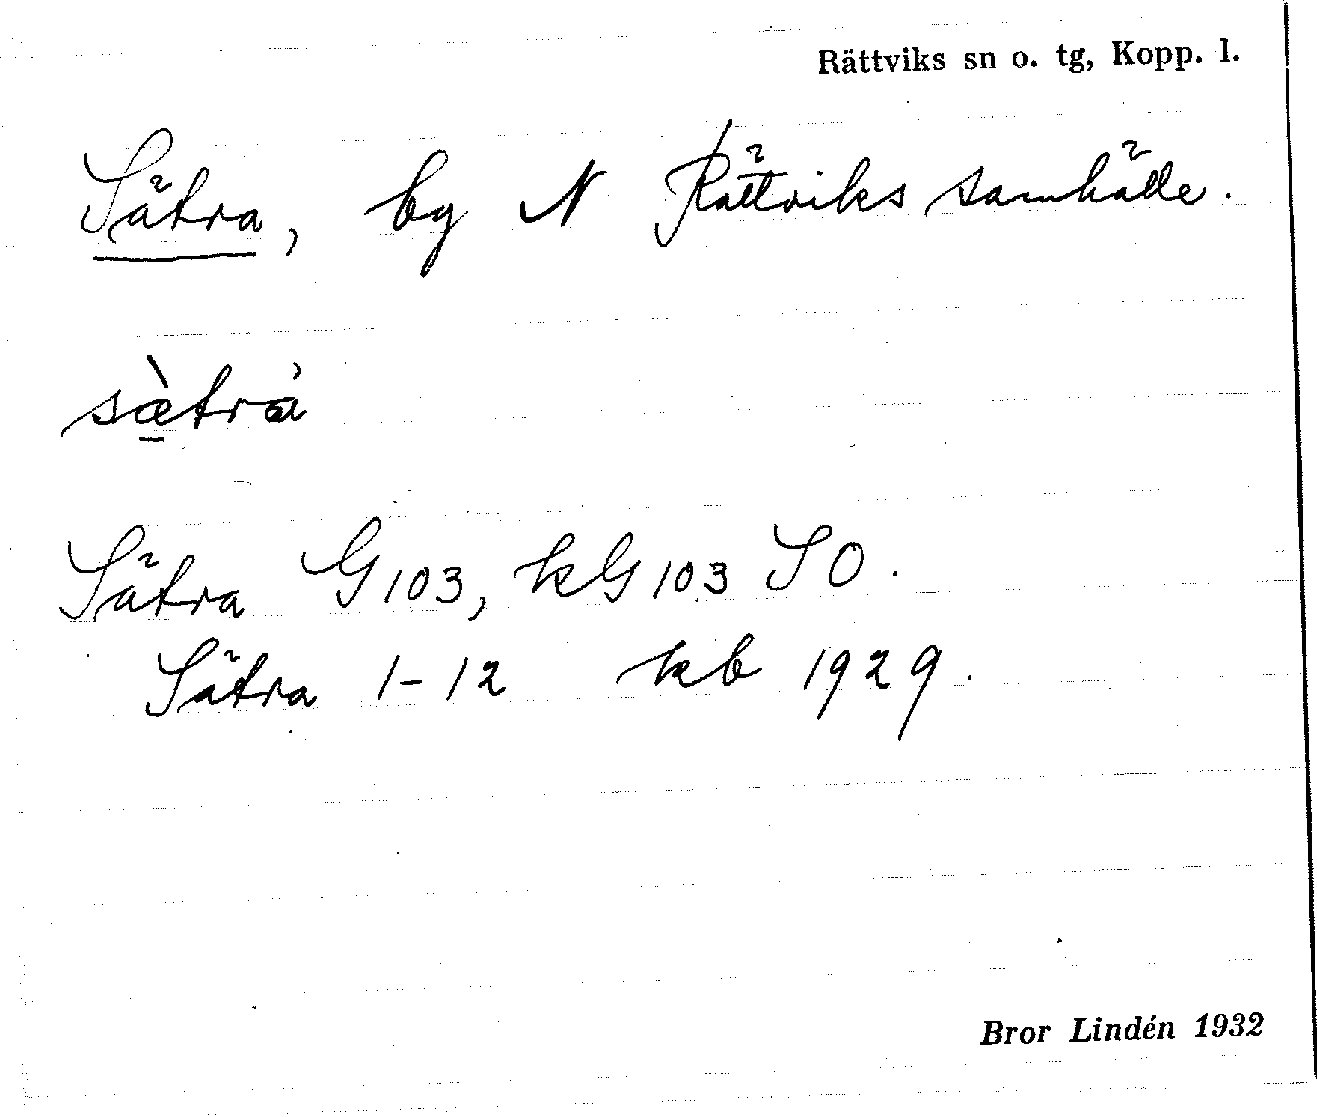 Rättviks sn o. tg, Kopp. l.
Sätra, by N Rättviks samhälle.
sæ̀trà
Sätra G103, kG103 SO.
Sätra 1-12 kb 1929.
Bror Lindén 1932